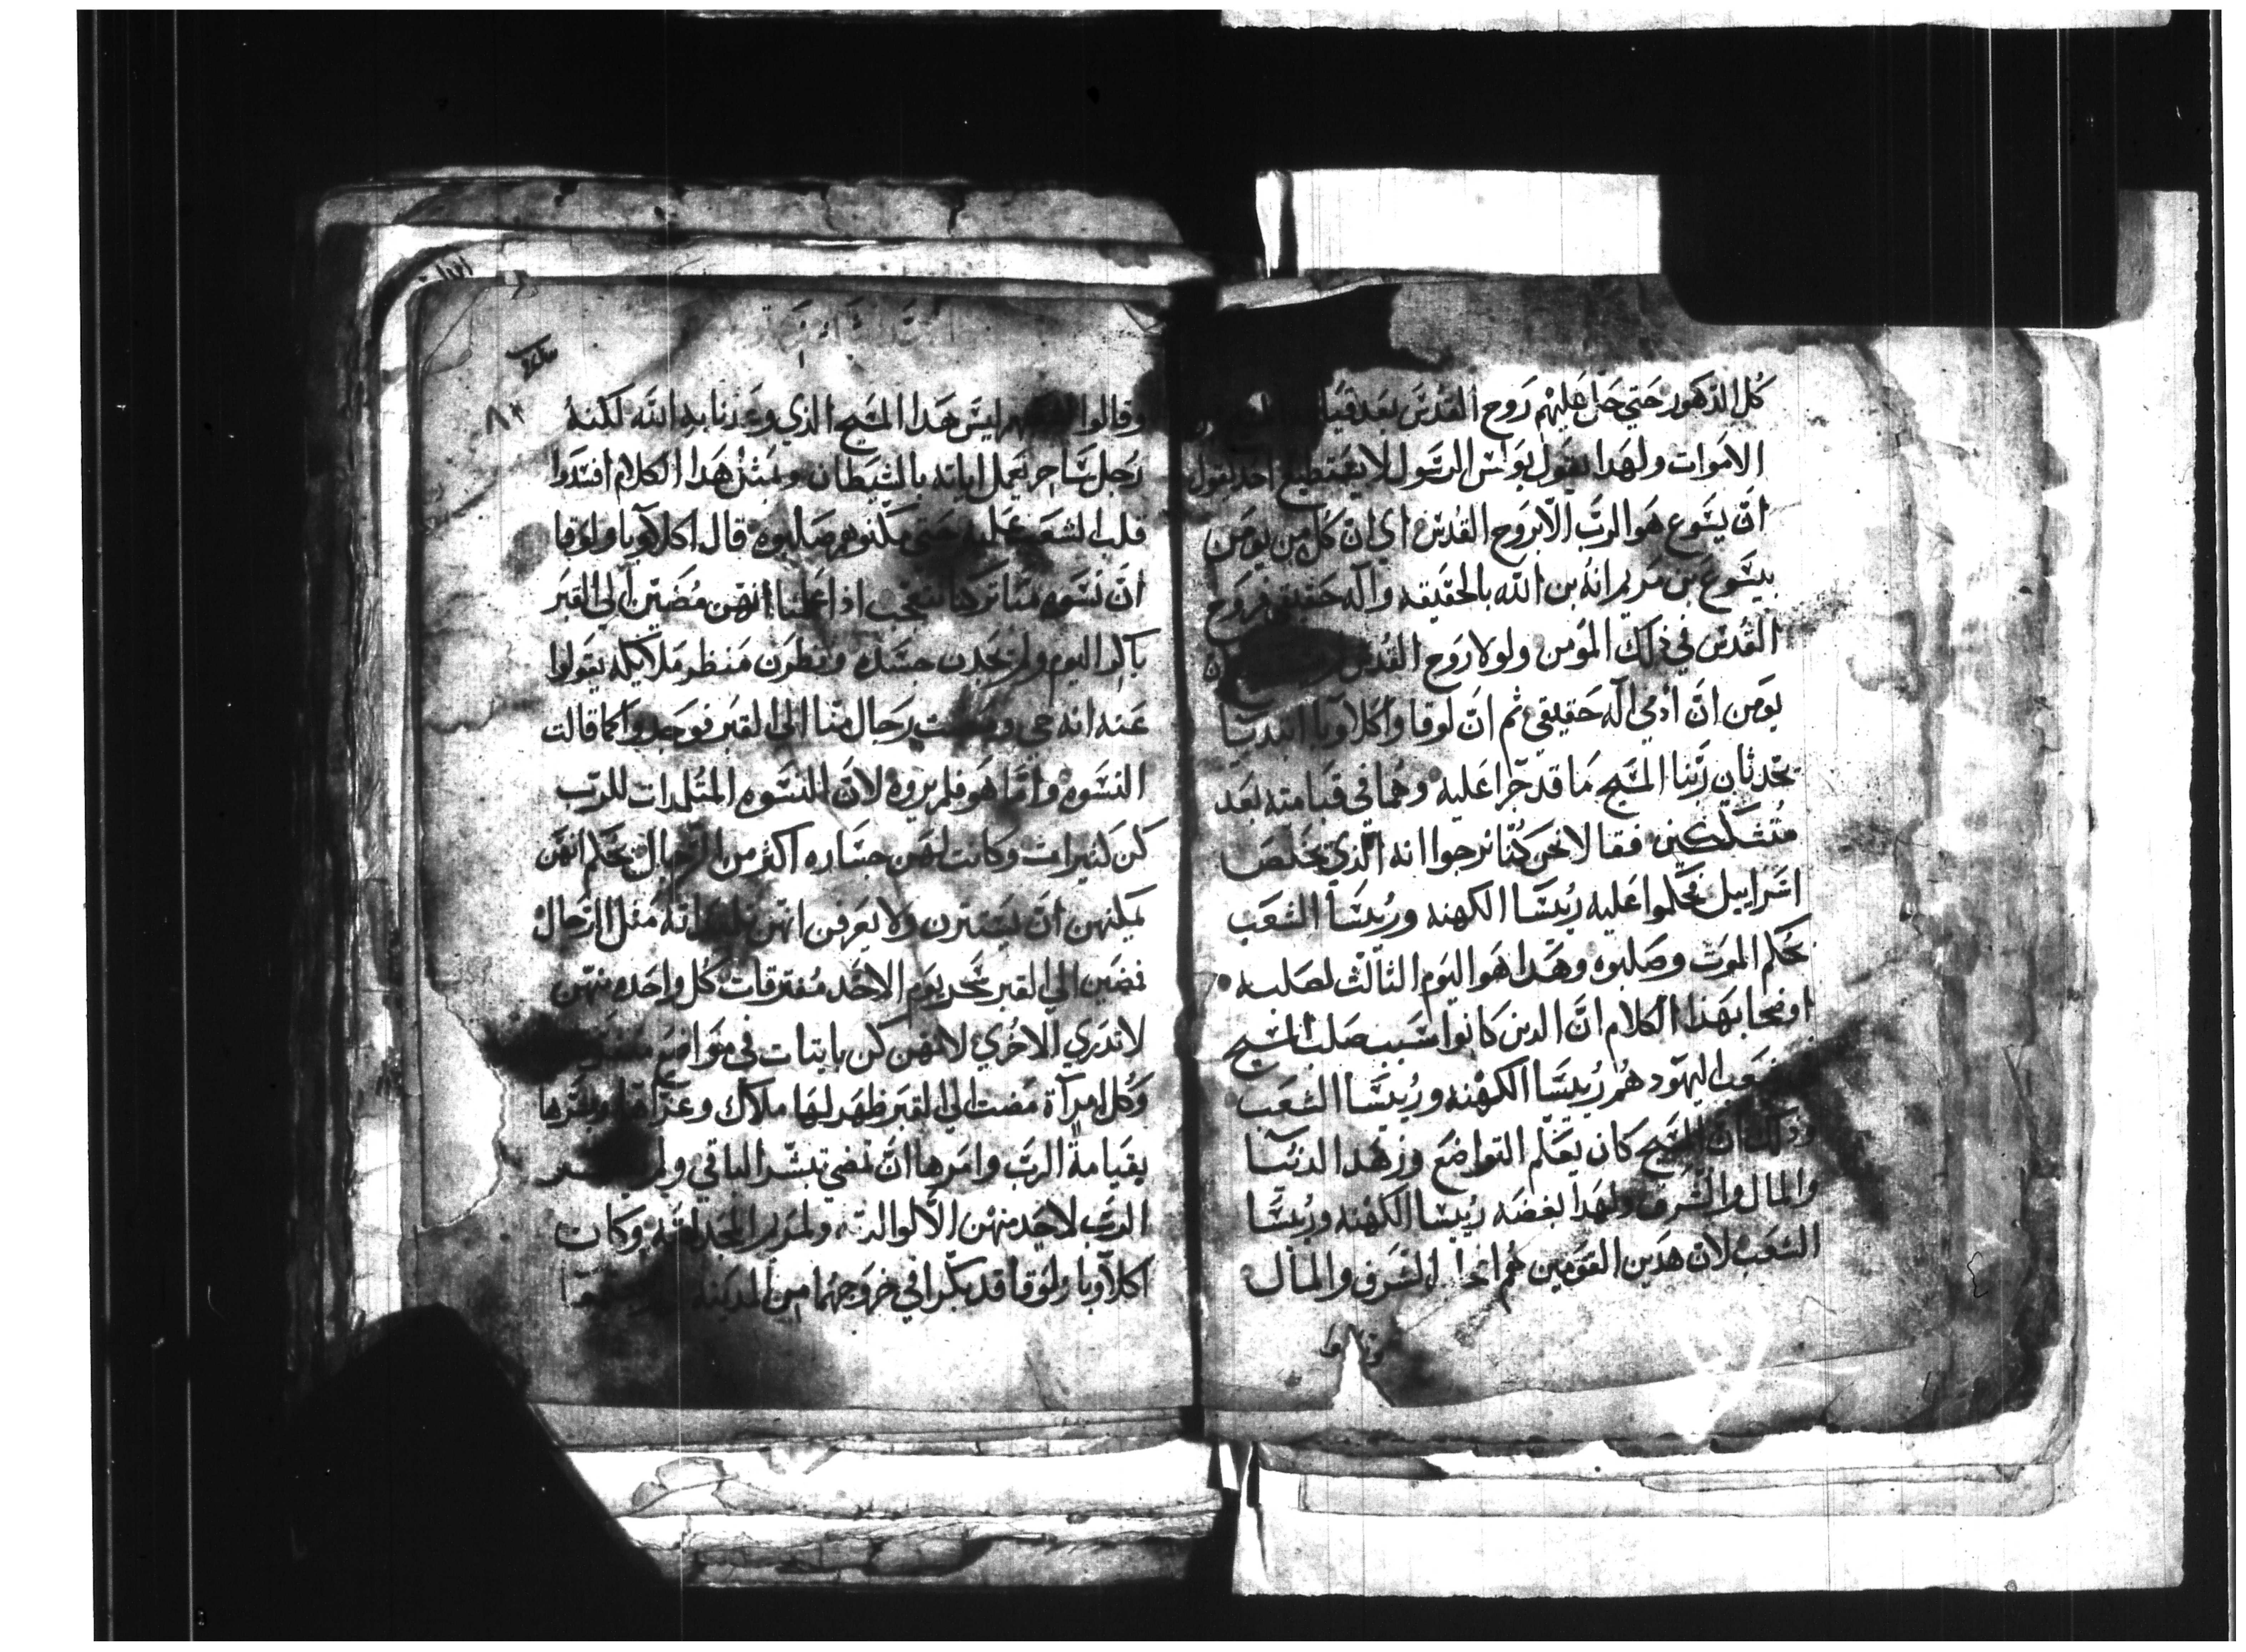 كل المذكور حتي حل عليهم روح القدس بعد
الاموات ولهدا يقول بولس الرسول لا يستطيع احد يقول
ان يسوع هو الرب الا بروح القدس اي ان كل من يومن
بيسوع بن مريم انه بن الله بالحقيقه واله حقيقي فروح
القدس في ذلك المومن ولولا روح القدس
يومن ان ادمي اله حقيقي ثم ان لوقا واكلاوبا ابتديا
يحدثان ربنا المسيح بما قد جرا عليه وهما في قيامته بعد
متشككين فقالا نحن كنا نرجوا انه الذي يخلص
اسراييل فحكموا عليه ريسا الكهنه وريسا الشعب
بحكم الموت وصلبوه وهدا هو اليوم الثالث لصلبه
اوضحا بهذا الكلام ان الدين كانوا سبب صلب المسيح
اليهود هم ريسا الكهنه وريسا الشعب
وذلك ان المسيح كان يعلم التواضع وزهد الدنيا
والمال والشرف ولهدا بغضه ريسا الكهنه وريسا
الشعب لان هدين القومين هم الشرف والمال
وقالوا
وقالوا ليس هدا المسيح الذي وعدنا به الله لكنه
رجل ساحر يعمل اياته بالشيطان وبمثل هدا الكلام افسدوا
قلب الشعب عليه حتي صلبوه قال اكلاوبا ولوقا
ان نسوه منا تركننا نتعجب اذ اعلمننا انهن مضين الي القبر
باكر اليوم ولم يجدن جسده ونظرن منظر ملايكه يقولوا
عنه انه حي ومضت رجال منا الي القبر فوجدوا كما قالت
النسوه واما هو فلم يروه لان النسوه المتلمدات للرب
كن كثيرات وكانت لهن جساره اكثر من الرجال بحكم انهن
يمكنهن ان يستترن ولا يعرفن انهن مثل الرجال
فمضين الي القبر سحر يوم الاحد مفترقات كل واحده منهن
لا تدري الاخري لانهن كن بايتات في مواضع
وكل امراة مضت الي القبر ظهر لها ملاك وعزاها وبشرها
بقيامة الرب وامرها ان تمضي تبشر الباقي ولم
الرب لاحد منهن الا لوالدته ولمريم المجدلانيه وكان
اكلاوبا ولوقا قد بكرا في خروجهما من المدينه